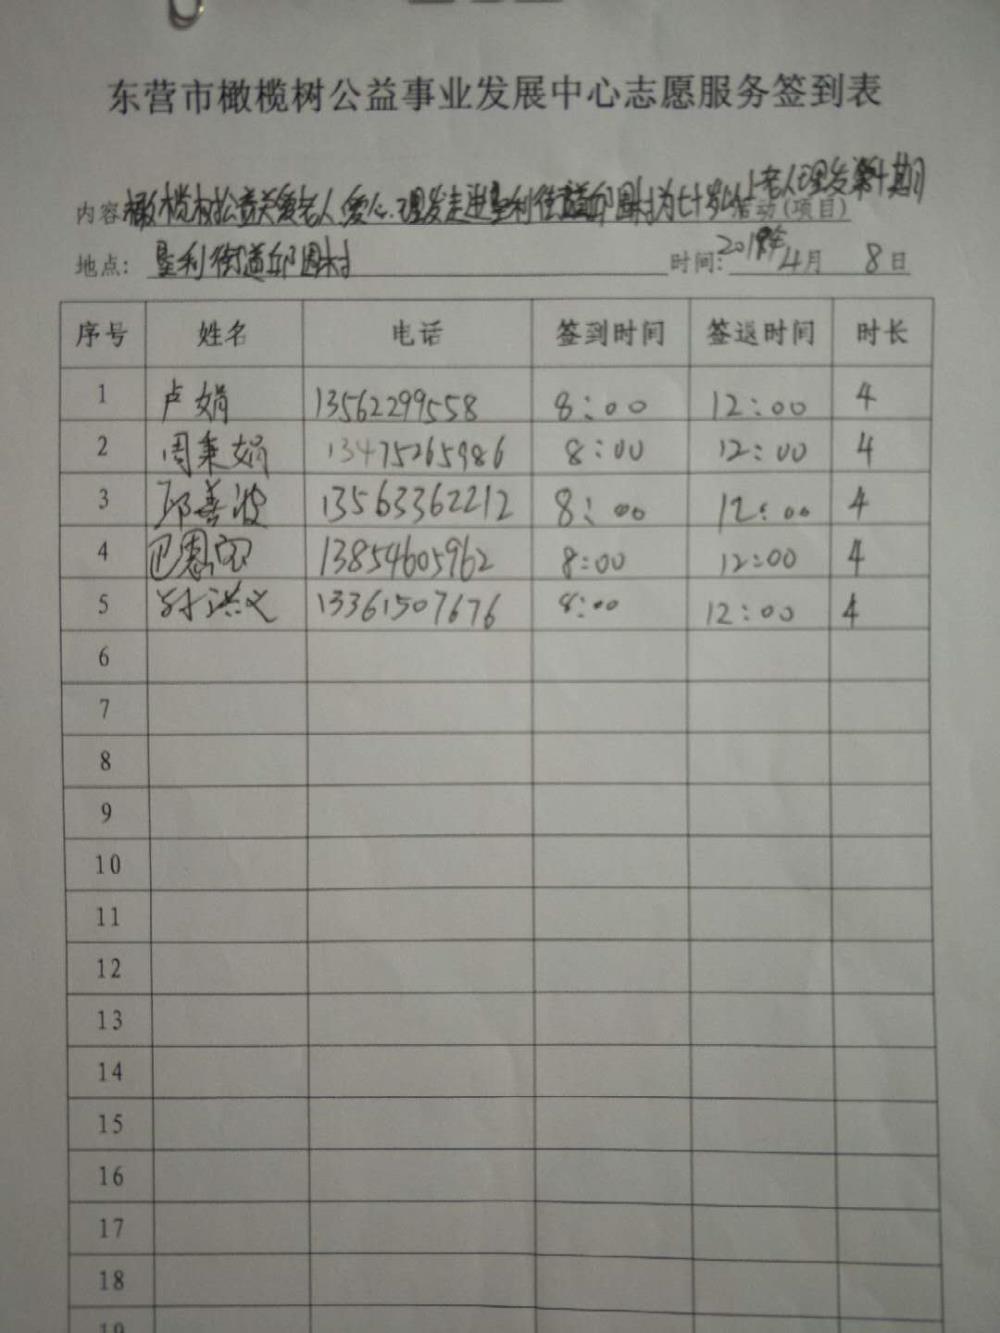 东营市橄榄树公益事业发展中心志愿服务签到表
内容 橄榄树公益关爱老人爱心理发走进垦利街道邱围村为七十岁以上老人理发第十期 活动(项目)
地点: 垦利街道邱围村 时间: 2018年 4月 8日
序号 姓名 电话 签到时间 签退时间 时长
1 卢娟 13562299558 8:00 12:00 4
2 周秉娟 13475265986 8:00 12:00 4
3 邱善波 13563362212 8:00 12:00 4
4 巴 13854605962 8:00 12:00 4
5 孙洪义 13361507676 8:00 12:00 4
6
7
8
9
10
11
12
13
14
15
16
17
18
19